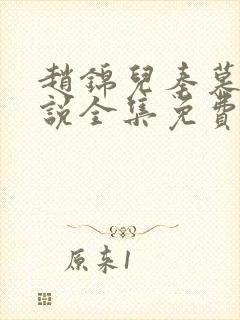 趙錦兒秦慕
說全集免費
原來1